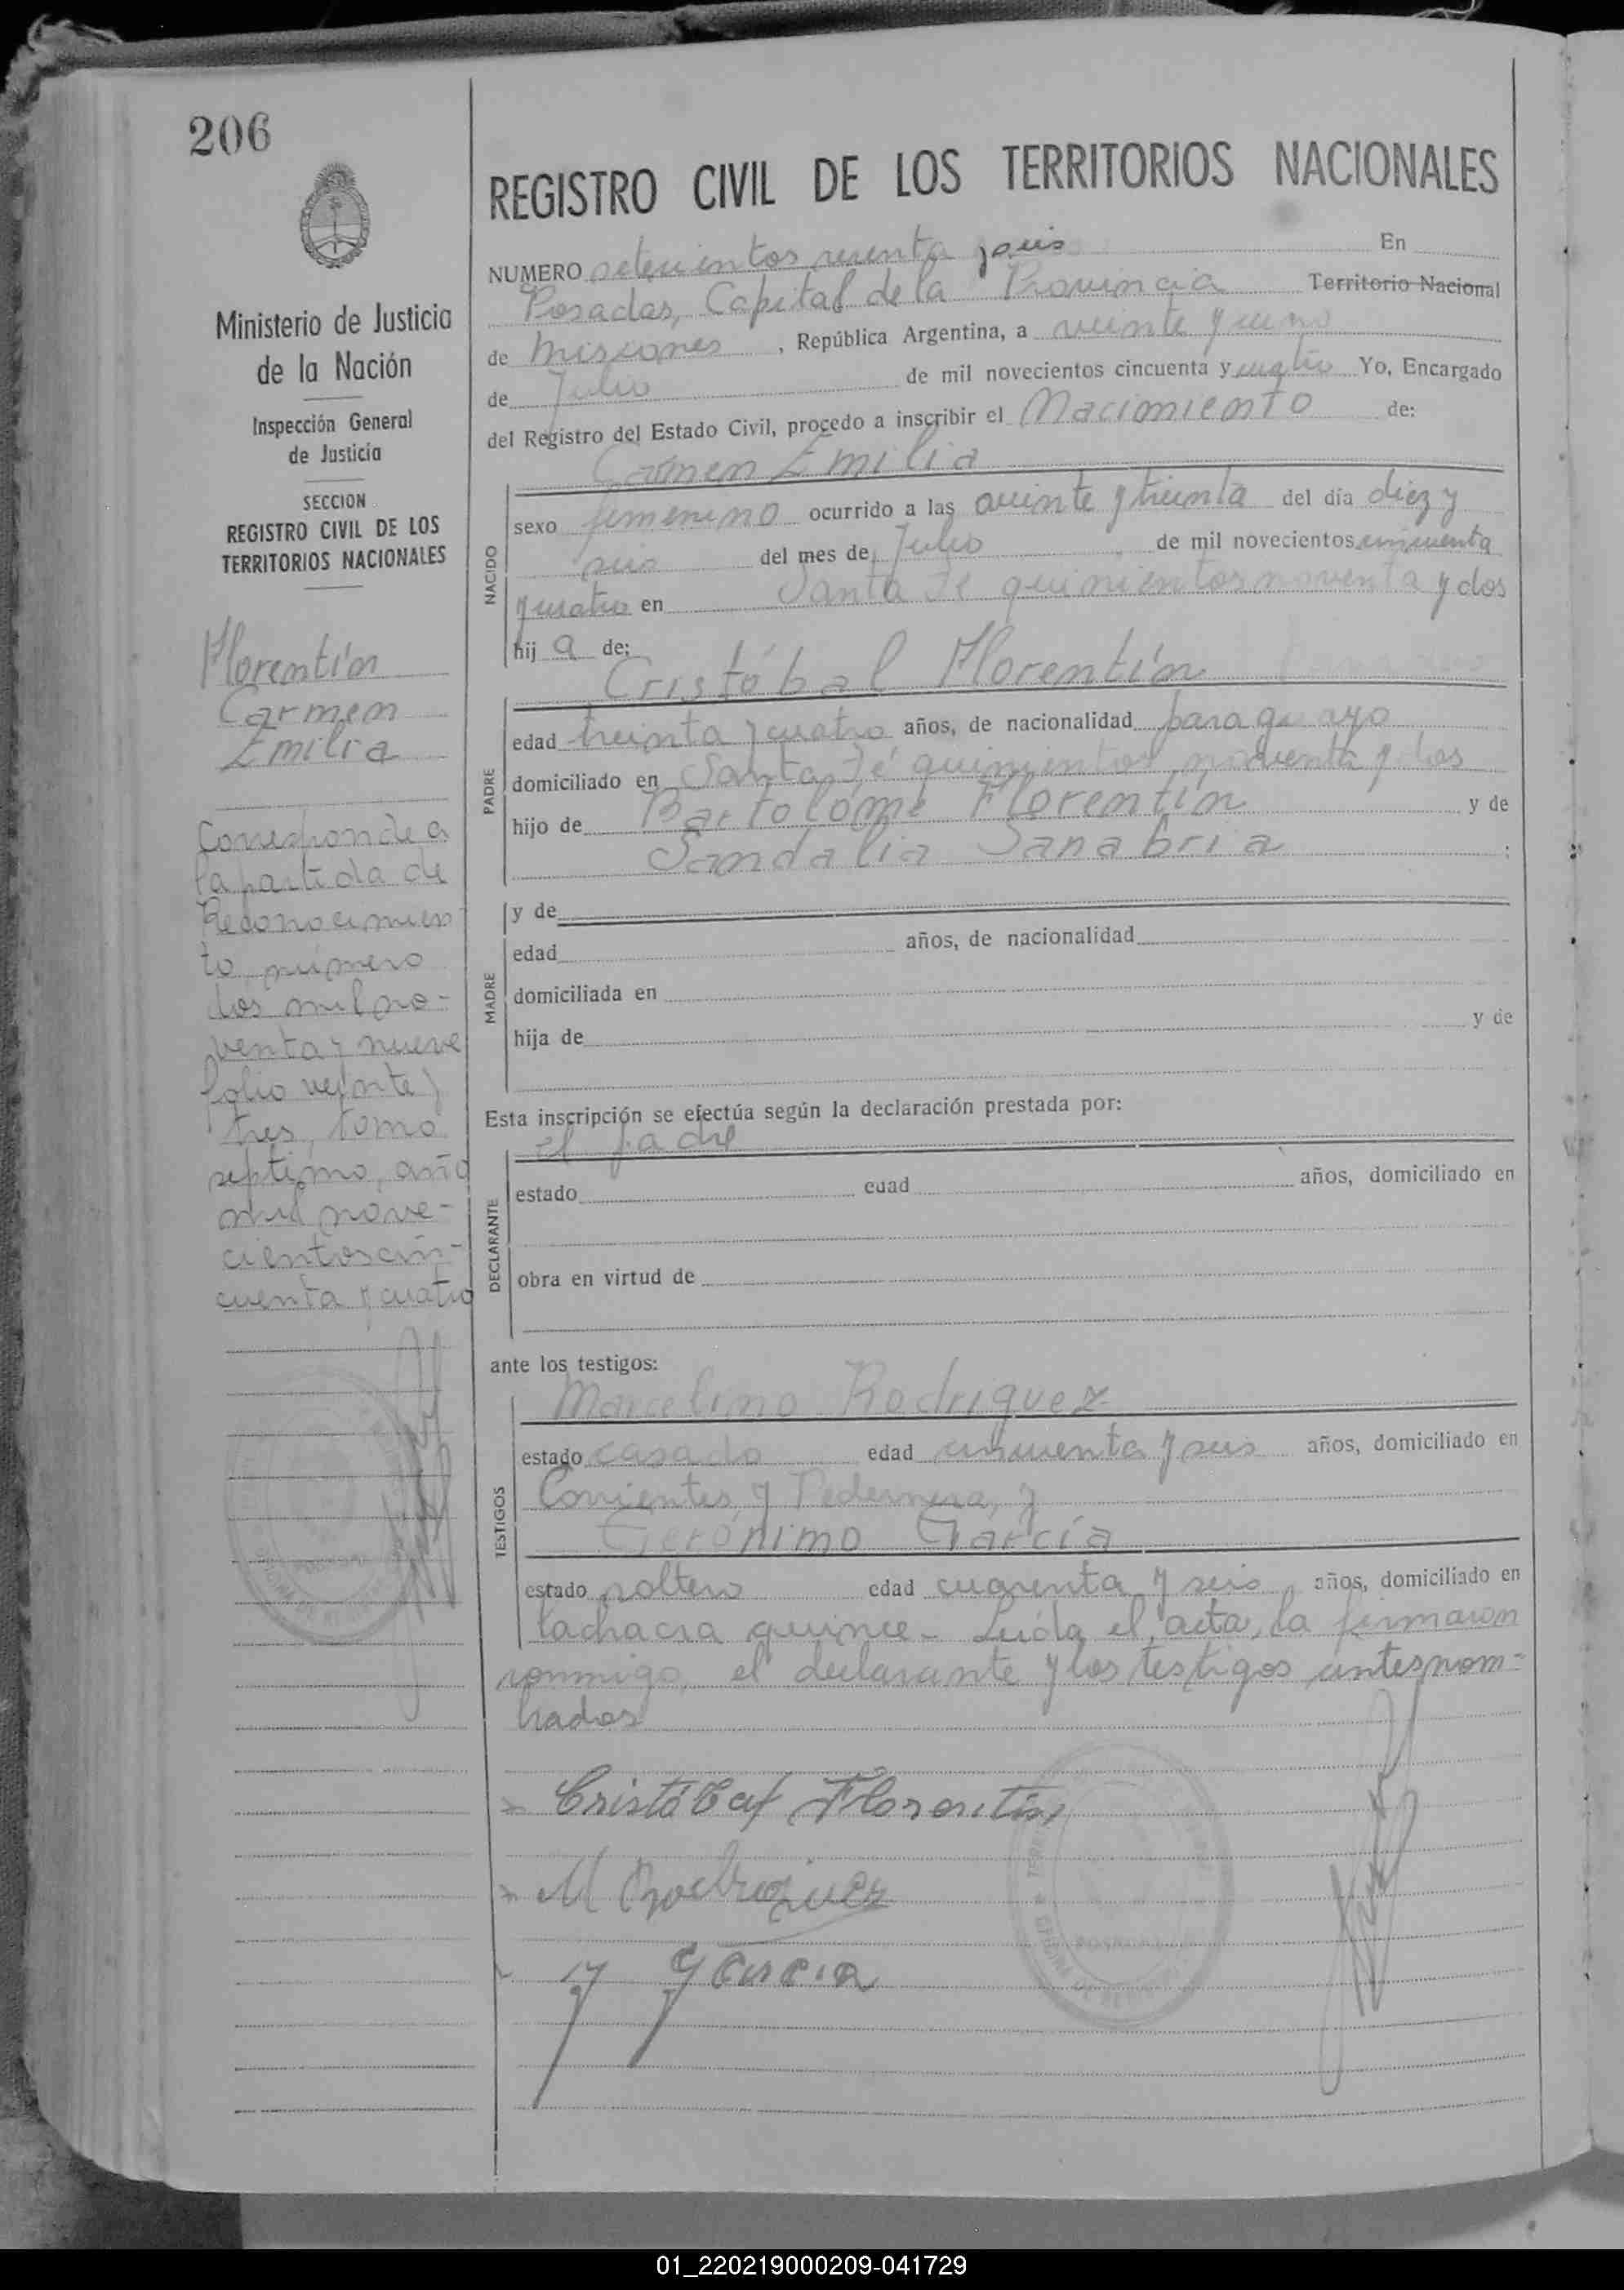 206
REGISTRO CIVIL DE LOS TERRITORIOS NACIONALES
NUMERO setecientos y seis En
Posadas, Capital de la Provincia Territorio Nacional
de Misiones, República Argentina, a veinte y uno
de Julio de mil novecientos cincuenta y cuatro Yo, Encargado
del Registro del Estado Civil, procedo a inscribir el Nacimiento de:
Carmen Emilia
NACIDO
sexo femenino ocurrido a las veinte y treinta del día diez y
seis del mes de Julio de mil novecientos cincuenta
y cuatro en Santa Fé quinientos noventa y dos
hij a de:
Cristóbal Florentín
PADRE
edad treinta y cuatro años, de nacionalidad paraguayo
domiciliado en Santa Fé quinientos noventa y dos
hijo de Bartolomé Florentín y de
Sandalia Sanabria ;
MADRE
y de
edad años, de nacionalidad
domiciliada en
hija de y de
Esta inscripción se efectúa según la declaración prestada por:
el padre
DECLARANTE
estado edad años, domiciliado en
obra en virtud de
ante los testigos:
TESTIGOS
Marcelino Rodriguez
estado casado edad cincuenta y seis años, domiciliado en
Corrientes y Pedernera, y
Gerónimo García
estado soltero edad cuarenta y seis, años, domiciliado en
la chacra quince - Leída el acta, la firmaron
conmigo, el declarante y los testigos antes nom-
brados
Cristóbal Florentín
M Rodriguez
García
Ministerio de Justicia
de la Nación
Inspección General
de Justicia
SECCION
REGISTRO CIVIL DE LOS
TERRITORIOS NACIONALES
Florentín
Carmen
Emilia
Corresponde a
la partida de
Reconocimien
to número
dos mil no-
venta y nueve
folio veinte y
tres, tomo
septimo, año
mil nove-
cientos cin-
cuenta y cuatro
01_220219000209-041729